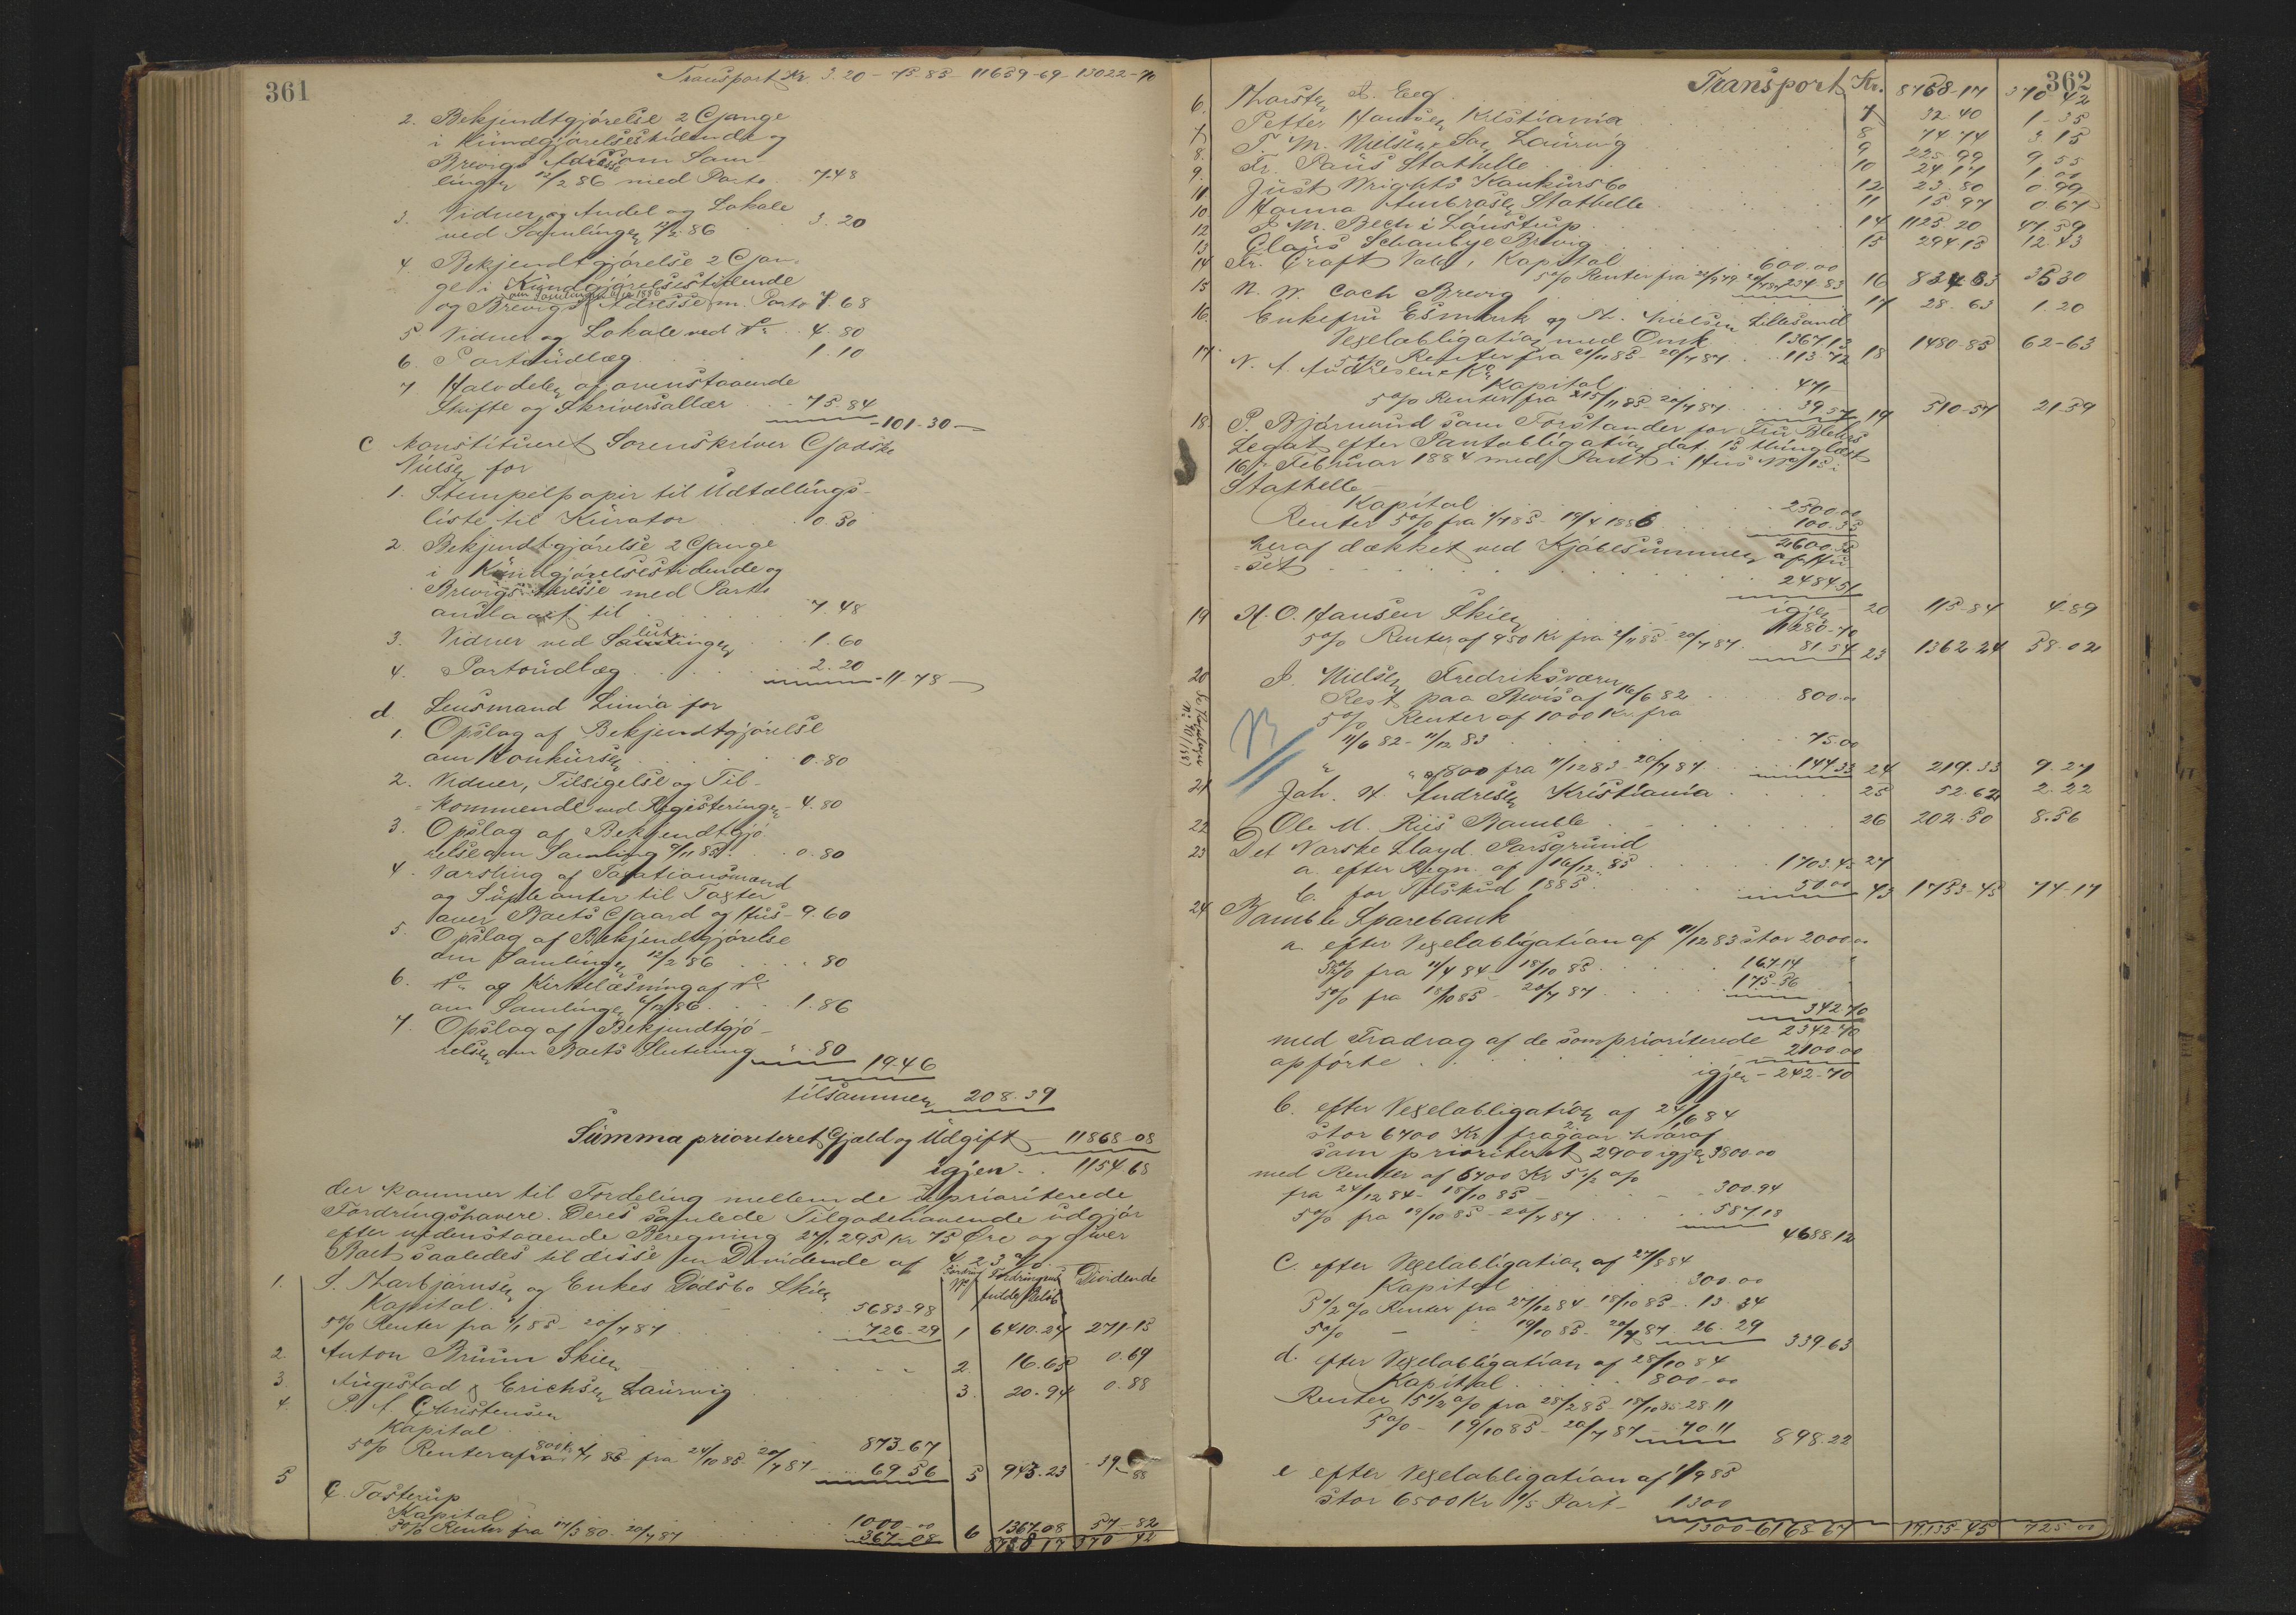 361
Transport Kr. 3.20 - 75.85 - 11659-69 - 13022-76
2. Bekjendtgjörelse 2 Gange
i Kundgjörelsestidende og
Brevigs Adresse om Sam-
lingen 12/2 86 med Porto 7.48
3. Vidner og Andel og Lokale
ved Samlingen 12/2 86 3.20
4. Bekjendtgjörelse 2 Gan-
ge i Kundgjörelsestidende
og Brevigs Adresse m. Porto 7.68
5 Vidner og Lokale ved do 4.80
6. Portoudlæg 1.10
7 Halvdelen af ovenstaaende
Skifte og Skriversallær 75.84
101-30
c Konstitueret Sorenskriver Godske
Nielsen for
1. Stempelpapir til Udtællings-
liste til Kurator 0.50
2. Bekjendtgjörelse 2 Gange
i Kundgjörelsestidende og
Brevigs Adresse med Porto
anslaaet til 7.48
3. Vidner ved Slutn. 1.60
4. Portoudlæg 2.20
11.78
d. Lensmand Linna for
1. Opslag af Bekjendtgjörelse
om Konkursen 0.80
2. Vidner, Tilsigelse og Til-
kommende ved Registeringen 4.80
3. Opslag af Bekjendtgjö-
relse om Samling 7/11 85 0.80
4. Varsling af Taxationsmænd
og Supleanter til Taxter
over Boets Gaard og Hus 9.60
5. Opslag af Bekjendtgjörelse
om Samlingen 12/2 86 80
6. do og Kirkelæsning af do
om Samlingen 6/12 86 1.86
7. Opslag af Bekjendtgjö-
relsen om Boets Slutning 80
19.46
tilsammen 208.39
Summa prioriteret Gjæld og Udgift 11868-08
igjen 1154 68
der kommer til Fordeling mellem de uprioriterede
Fordringshavere. Deres samlede Tilgodehavende udgjör
efter nedenstaaende Beregning 27,295 Kr 75 Öre og giver
Boet saaledes til disse en Dividende af 4.23 %
Fordringens fulde Belöb Dividende
1. S. Thorbjörnsen og Enkes Dödsbo Skien
Kapital 5683-98
5% Renter fra 1/1 85 - 20/7 87 726-29 1 6410.27 271-15
2 Anton Bruun Skien 2 16.65 0.69
3 Augestad & Erichsen Laurvig 3. 20-94 0.88
4. P. A. Christensen
Kapital 873-67
5% Renter af 800 Kr fra 24/10 85 - 20/7 87 69 56 5 943.23 39 88
5 C. Tosterup
Kapital 1000-00
5% Renter fra 17/3 80 - 20/7 87 367-08 6 1367.08 57-82
8758 17 370 42
362
Transport Kr. 8758-17 370-42
6. Thorsten A. Eeg 7 32 40 1-35
7 Petter Hansen Kristiania 8 74 74 3 15
8. T. M. Nielsen & Søn Laurvig 9 225 99 9.55
9. Fr. Paus Stathelle 10 24 17 1.00
11 Just Wrights Konkursbo 12 23.80 0.99
10. Hanna Ambrosen Stathelle 11 15.97 0.67
12 J. M. Bech i Laustrup 14 1125.20 47.59
13 Claus Schanbye Brevig 15 294.15 12.43
14 Fr. Craft Vold, Kapital 600.00
5% Renter fra 20/7 87 234.83 16 834.63 35 30
15 N. W. Coch Brevig 17 28.63 1.20
16. Enkefru Esmark og N. Nielsen Lillesand
Vexelobligation med Omk 1367.13
5% Renter fra 21/11 85 - 20/7 87 113-72 18 1480-85 62-63
17 N. A. Andresen & Ko
Kapital 471
5% Renter fra 15/11 85 - 20/7 87 39 57 19 510-57 21.59
18. P. Bjørnund som Forstander for Fru Blehrs
Legat efter Pantobligation dat. 15 thinglæst
16 Februar 1884 med Pant i Hus No 15 i
Stathelle
Kapital 2500.00
Renter 5% fra 1/7 85 - 19/4 1886 100.35
2600.35
heraf dækket ved Kjöbesummen af Hu-
set 2484.51
igjen 20 115-84 4.89
19 H. O. Hansen Skien 1280-70
5% Renter af 950 Kr fra 2/11 85 - 20/7 87 81.54 23 1362.24 58.02
20 J. Nielsen Fredriksværn
Rest paa Bevis af 16/6 82 800.00
5% Renter af 1000 Kr. fra
11/6 82 - 11/12 83 75.00
" " af 800 fra 11/12 83 - 20/7 87 144.33 24 219.33 9.27
21 Joh. H. Andresen Kristiania 25 52.62 2.22
22 Ole M. Riis Bamble 26 202.50 8.56
23 Det Norske Lloyd Porsgrund
a. efter Regn. af 16/12 85 1703.45 27
b. for Tilskud 1885 50.00 43 1753-45 74-17
24 Bamble Sparebank
a. efter Vexelobligation af 11/12 83 stor 2000.00
5½% fra 11/4 84 - 18/10 85 167.14
5% fra 18/10 85 - 20/7 87 175-56
342-70
2342-70
med Fradrag af de som prioriterede
opförte 2100.00
igjen - 242-70
b. efter Vexelobligation af 24/6 84
stor 6700 Kr, fragaar hvoraf
som prioriteret 2900 igjen 3800.00
med Renter af 6700 Kr 5½ %
fra 24/12 84 - 18/10 85 300.94
5% fra 19/10 85 - 20/7 87 587.18
4688.12
C. efter Vexelobligation af 27/8 84
Kapital 300.00
5½% Renter fra 27/12 84 - 18/10 85 13.34
5% - - 19/10 85 - 20/7 87 26.29
339-63
d. efter Vexelobligation af 28/10 84
Kapital 800-00
Renter 5½% fra 28/2 85 - 18/10 85 28.11
5% - 19/10 85 - 20/7 87 70.11
898.22
e efter Vexelobligation af 1/9 85
stor 6500 Kr 1/5 Part 1300
1300-6168-67 17,135-45 725.00